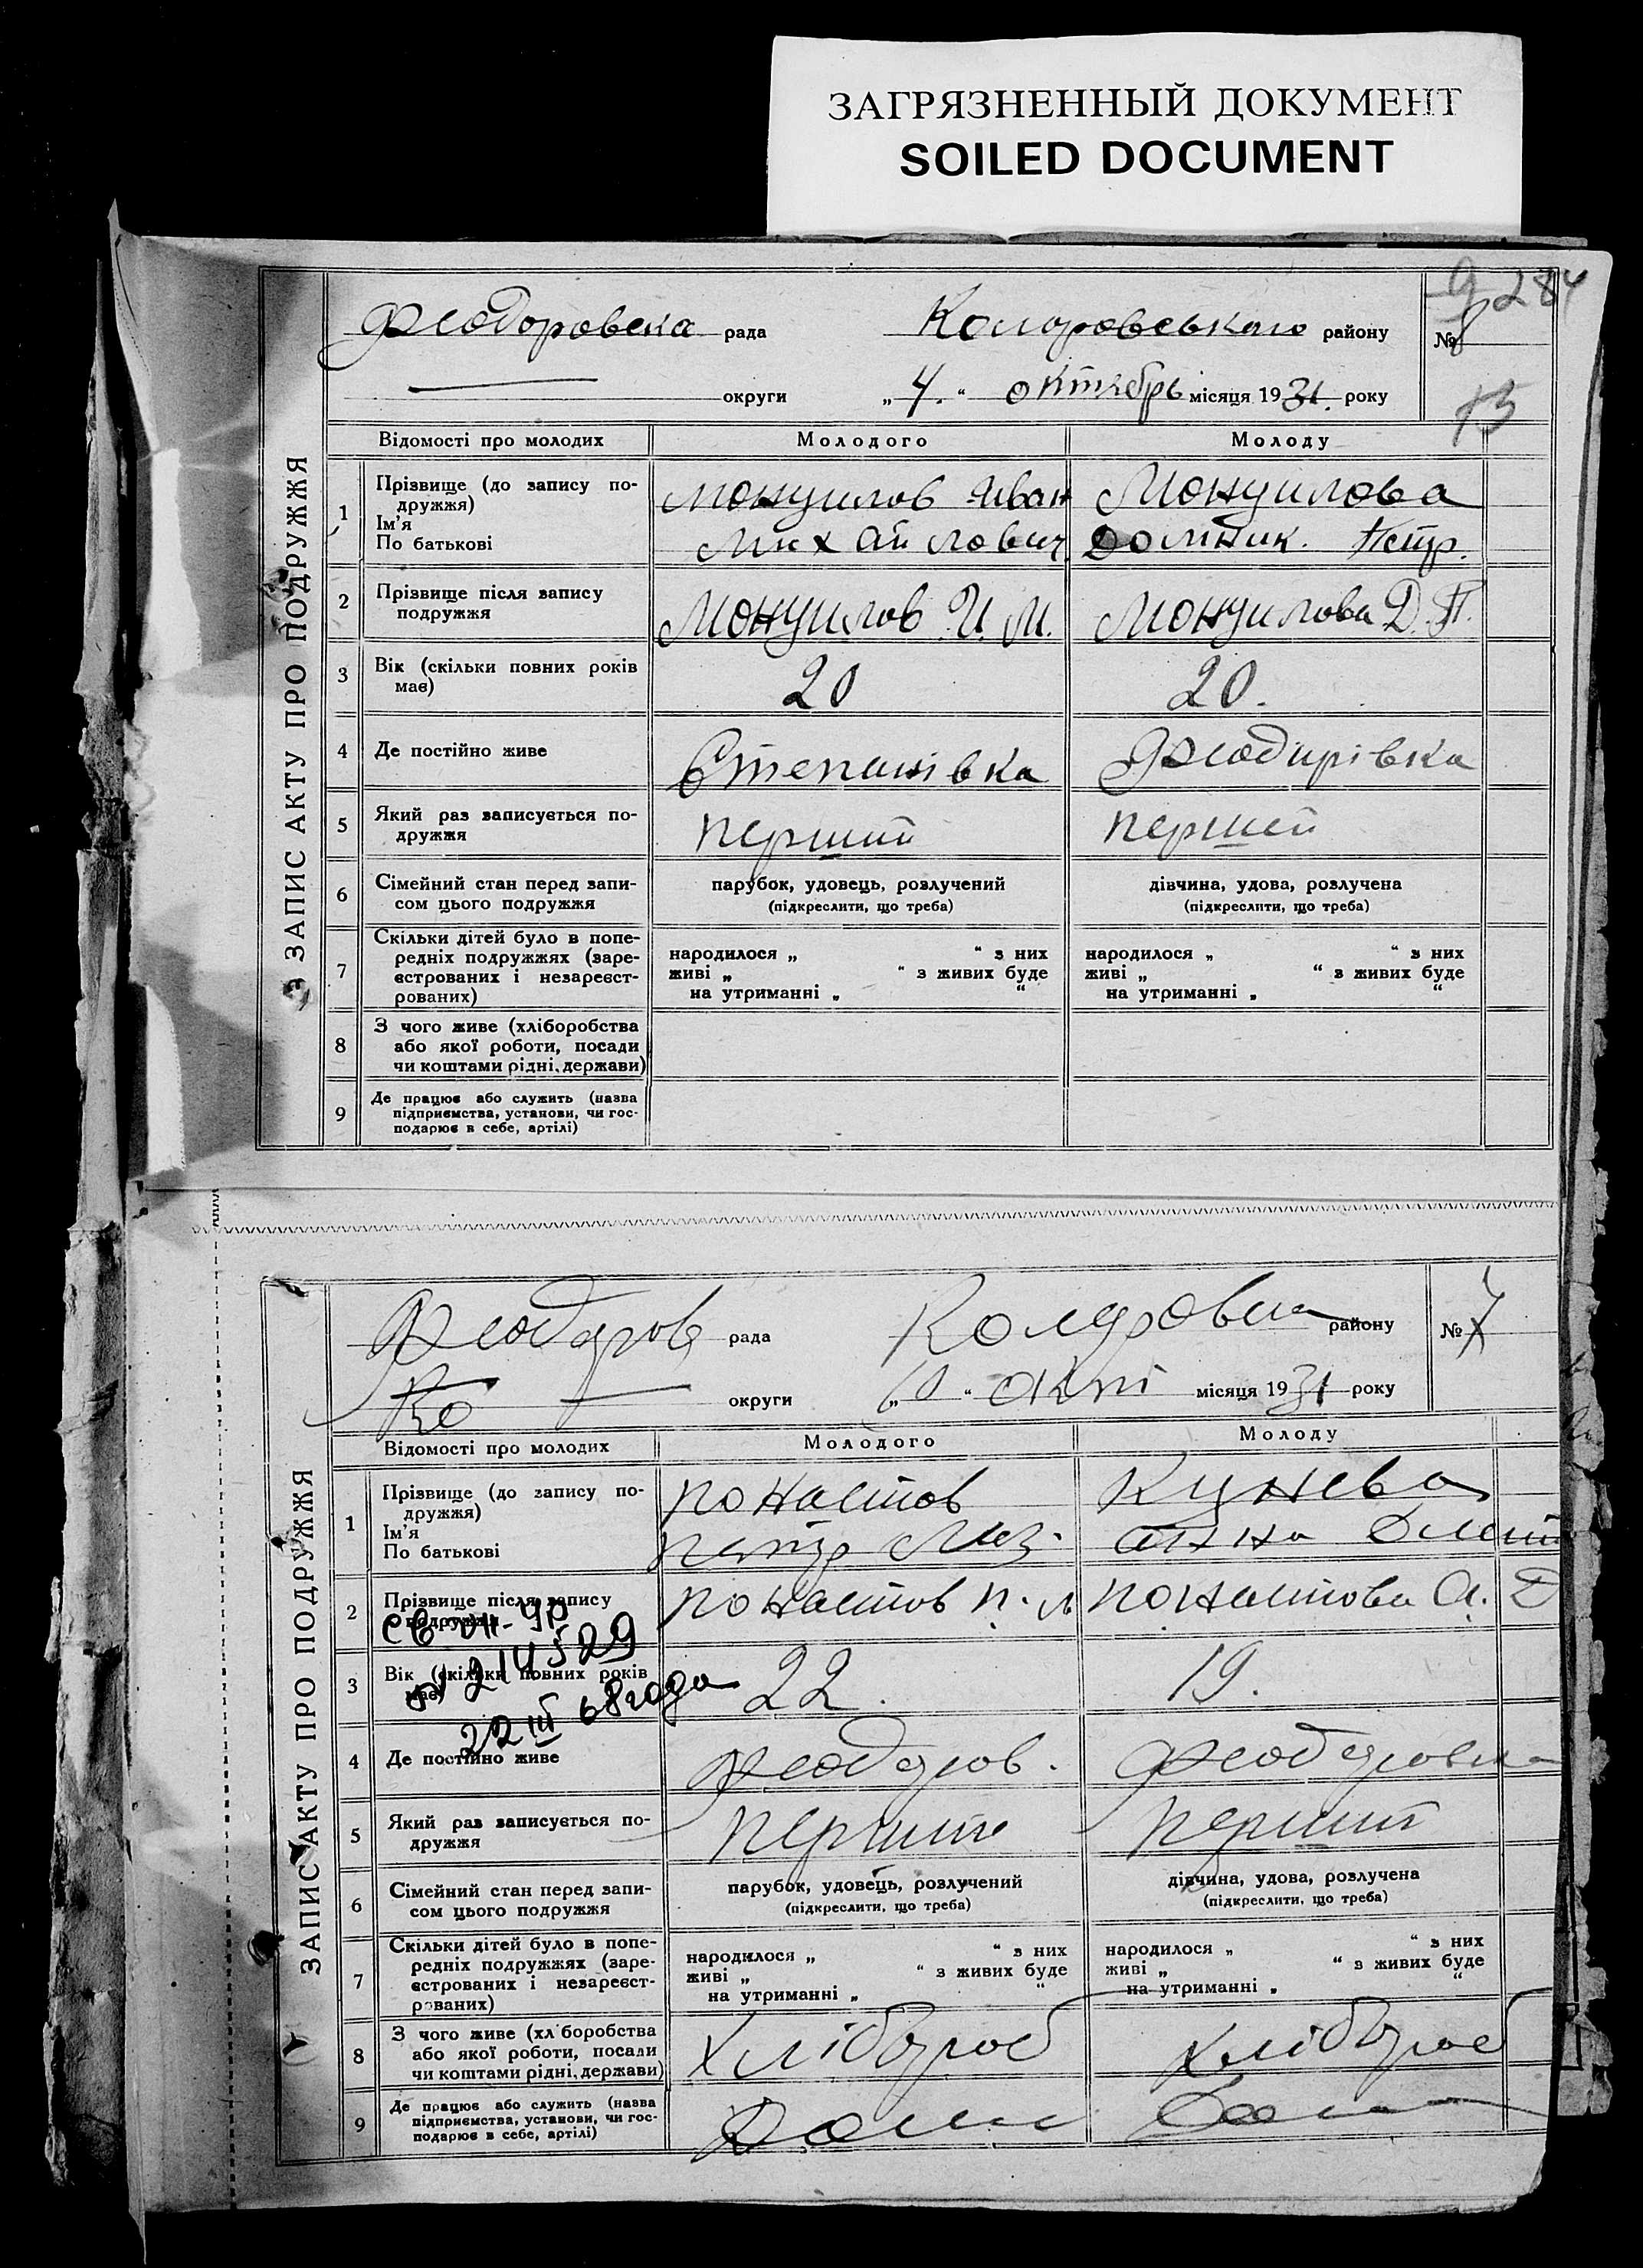 ЗАГРЯЗНЕННЫЙ ДОКУМЕНТ
SOILED DOCUMENT
284
Феодоровска рада Коларовського району № 8
округи „ 4. “ октябрь місяця 1931. року
15
ЗАПИС АКТУ ПРО ПОДРУЖЖЯ
Відомості про молодих Молодого Молоду
1 Прізвище (до запису по-
дружжя)
Ім'я
По батькові
Монцилов Иван
Михайлович
Монцилова
Домник. Петр.
2 Прізвище після запису
подружжя
Монцилов И. М. Монцилова Д. П.
3 Вік (скільки повних років
має)
20 20.
4 Де постійно живе Степанівка Феодирівка
5 Який раз записується по-
дружжя
перший першей
6 Сімейний стан перед запи-
сом цього подружжя
парубок, удовець, розлучений
(підкреслити, що треба)
дівчина, удова, розлучена
(підкреслити, що треба)
7 Скільки дітей було в попе-
редніх подружжях (заре-
єстрованих і незареєст-
рованих)
народилося „ “ з них
живі „ “ з живих буде
на утриманні „ “
народилося „ “ з них
живі „ “ з живих буде
на утриманні „ “
8 З чого живе (хліборобства
або якої роботи, посади
чи коштами рідні, держави)
9 Де працює або служить (назва
підприємства, установи, чи гос-
подарює в себе, артілі)
Феодоров рада Коларовска району № 7
Ко округи „ 10 “ окт місяця 1931 року
ЗАПИС АКТУ ПРО ПОДРУЖЖЯ
Відомості про молодих Молодого Молоду
1 Прізвище (до запису по-
дружжя)
Ім'я
По батькові
Понаетов
Петр
Кунева
анна Дмит
2 Прізвище після запису
подружжя
Понаетов П. Понаетова А. Д
св-
№ 214529
22 III 68 года
3 Вік (скільки повних років
має)
22. 19.
4 Де постійно живе Феодоров. Феодоровка
5 Який раз записується по-
дружжя
перший перший
6 Сімейний стан перед запи-
сом цього подружжя
парубок, удовець, розлучений
(підкреслити, що треба)
дівчина, удова, розлучена
(підкреслити, що треба)
7 Скільки дітей було в попе-
редніх подружжях (заре-
єстрованих і незареєст-
рованих)
народилося „ “ з них
живі „ “ з живих буде
на утриманні „ “
народилося „ “ з них
живі „ “ з живих буде
на утриманні „ “
8 З чого живе (хліборобства
або якої роботи, посади
чи коштами рідні, держави)
Хлібороб Хлібороб
9 Де працює або служить (назва
підприємства, установи, чи гос-
подарює в себе, артілі)
Дома Дома